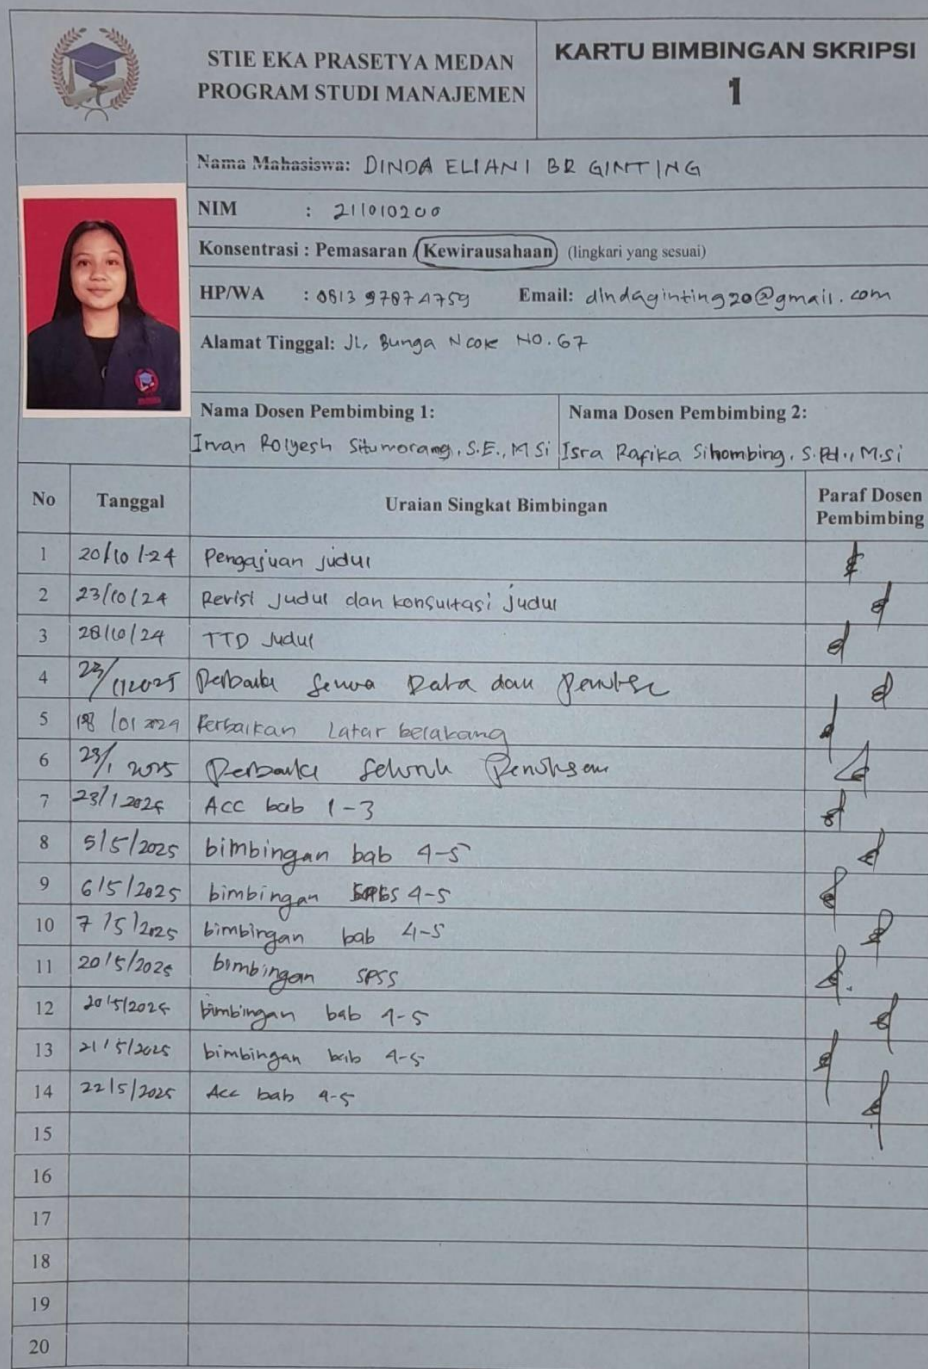 STIE EKA PRASETYA MEDAN
PROGRAM STUDI MANAJEMEN
KARTU BIMBINGAN SKRIPSI
1
Nama Mahasiswa: DINDA ELIANI BR GINTING
NIM : 211010200
Konsentrasi : Pemasaran / Kewirausahaan (lingkari yang sesuai)
HP/WA : 0813 97874759 Email: dindaginting20@gmail.com
Alamat Tinggal: JL, Bunga Ncole NO. 67
Nama Dosen Pembimbing 1: Nama Dosen Pembimbing 2:
Irvan Rolyesh Situmorang, S.E., M Si Isra Rafika Sihombing, S.Pd., M.Si
No Tanggal Uraian Singkat Bimbingan Paraf Dosen Pembimbing
1 20/10/24 Pengajuan judul
2 23/10/24 Revisi judul dan konsultasi judul
3 28/10/24 TTD Judul
4 Perbaiki semua Data dan
5 Perbaikan Latar belakang
6 23/1 2025 Perbaiki seluruh Penulisan
7 23/1 2025 Acc bab 1-3
8 5/5/2025 bimbingan bab 4-5
9 6/5/2025 bimbingan 4-5
10 7/5/2025 bimbingan bab 4-5
11 20/5/2025 bimbingan SPSS
12 20/5/2025 bimbingan bab 4-5
13 21/5/2025 bimbingan bab 4-5
14 22/5/2025 Acc bab 4-5
15
16
17
18
19
20